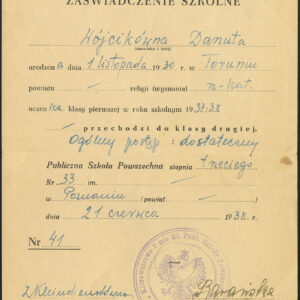 ZAŚWIADCZENIE SZKOLNE
Wójcikówna Danuta
(nazwisko i imię)
urodzona dnia 1 listopada 1930 r. w Toruniu
powiatu — religii (wyznania) rz-kat.
uczenica klasy pierwszej w roku szkolnym 1937-38
przechodzi do klasy drugiej.
Ogólny postęp: dostateczny
Publiczna Szkoła Powszechna stopnia trzeciego
Nr 33 im. —
w Poznaniu (powiat — )
dnia 21 czerwca 1938 r.
Nr 41
Barańska